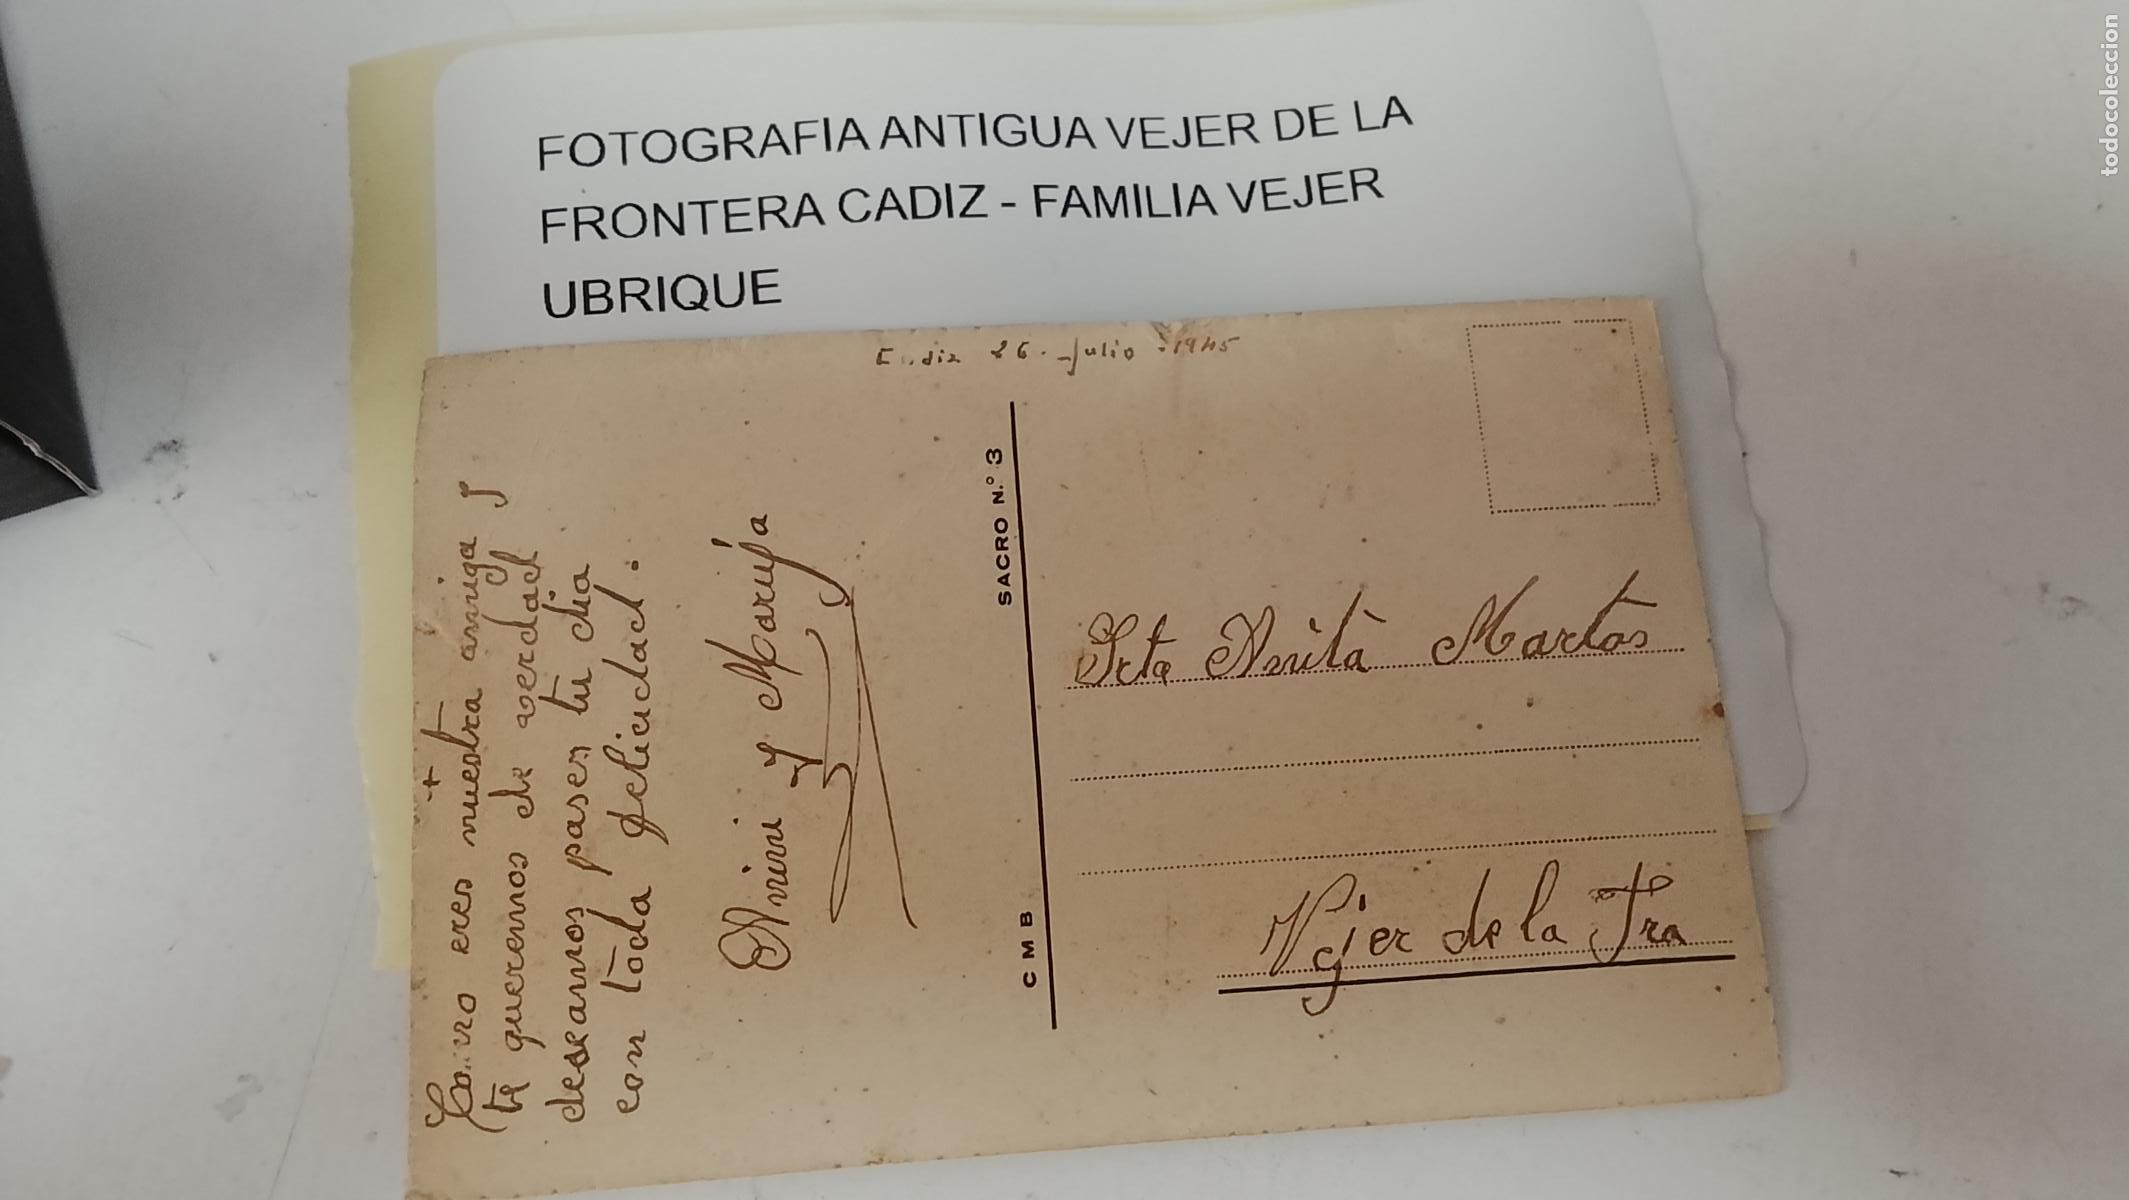 FOTOGRAFIA ANTIGUA VEJER DE LA
FRONTERA CADIZ - FAMILIA VEJER
UBRIQUE
Cadiz 26. Julio 1945
+
Como eres nuestra amiga y
te queremos de verdad
deseamos pases tu dia
con toda felicidad.
y Maruja
C M B
SACRO N.º 3
Srta Anita Martos
Vejer de la Fra
todocoleccion